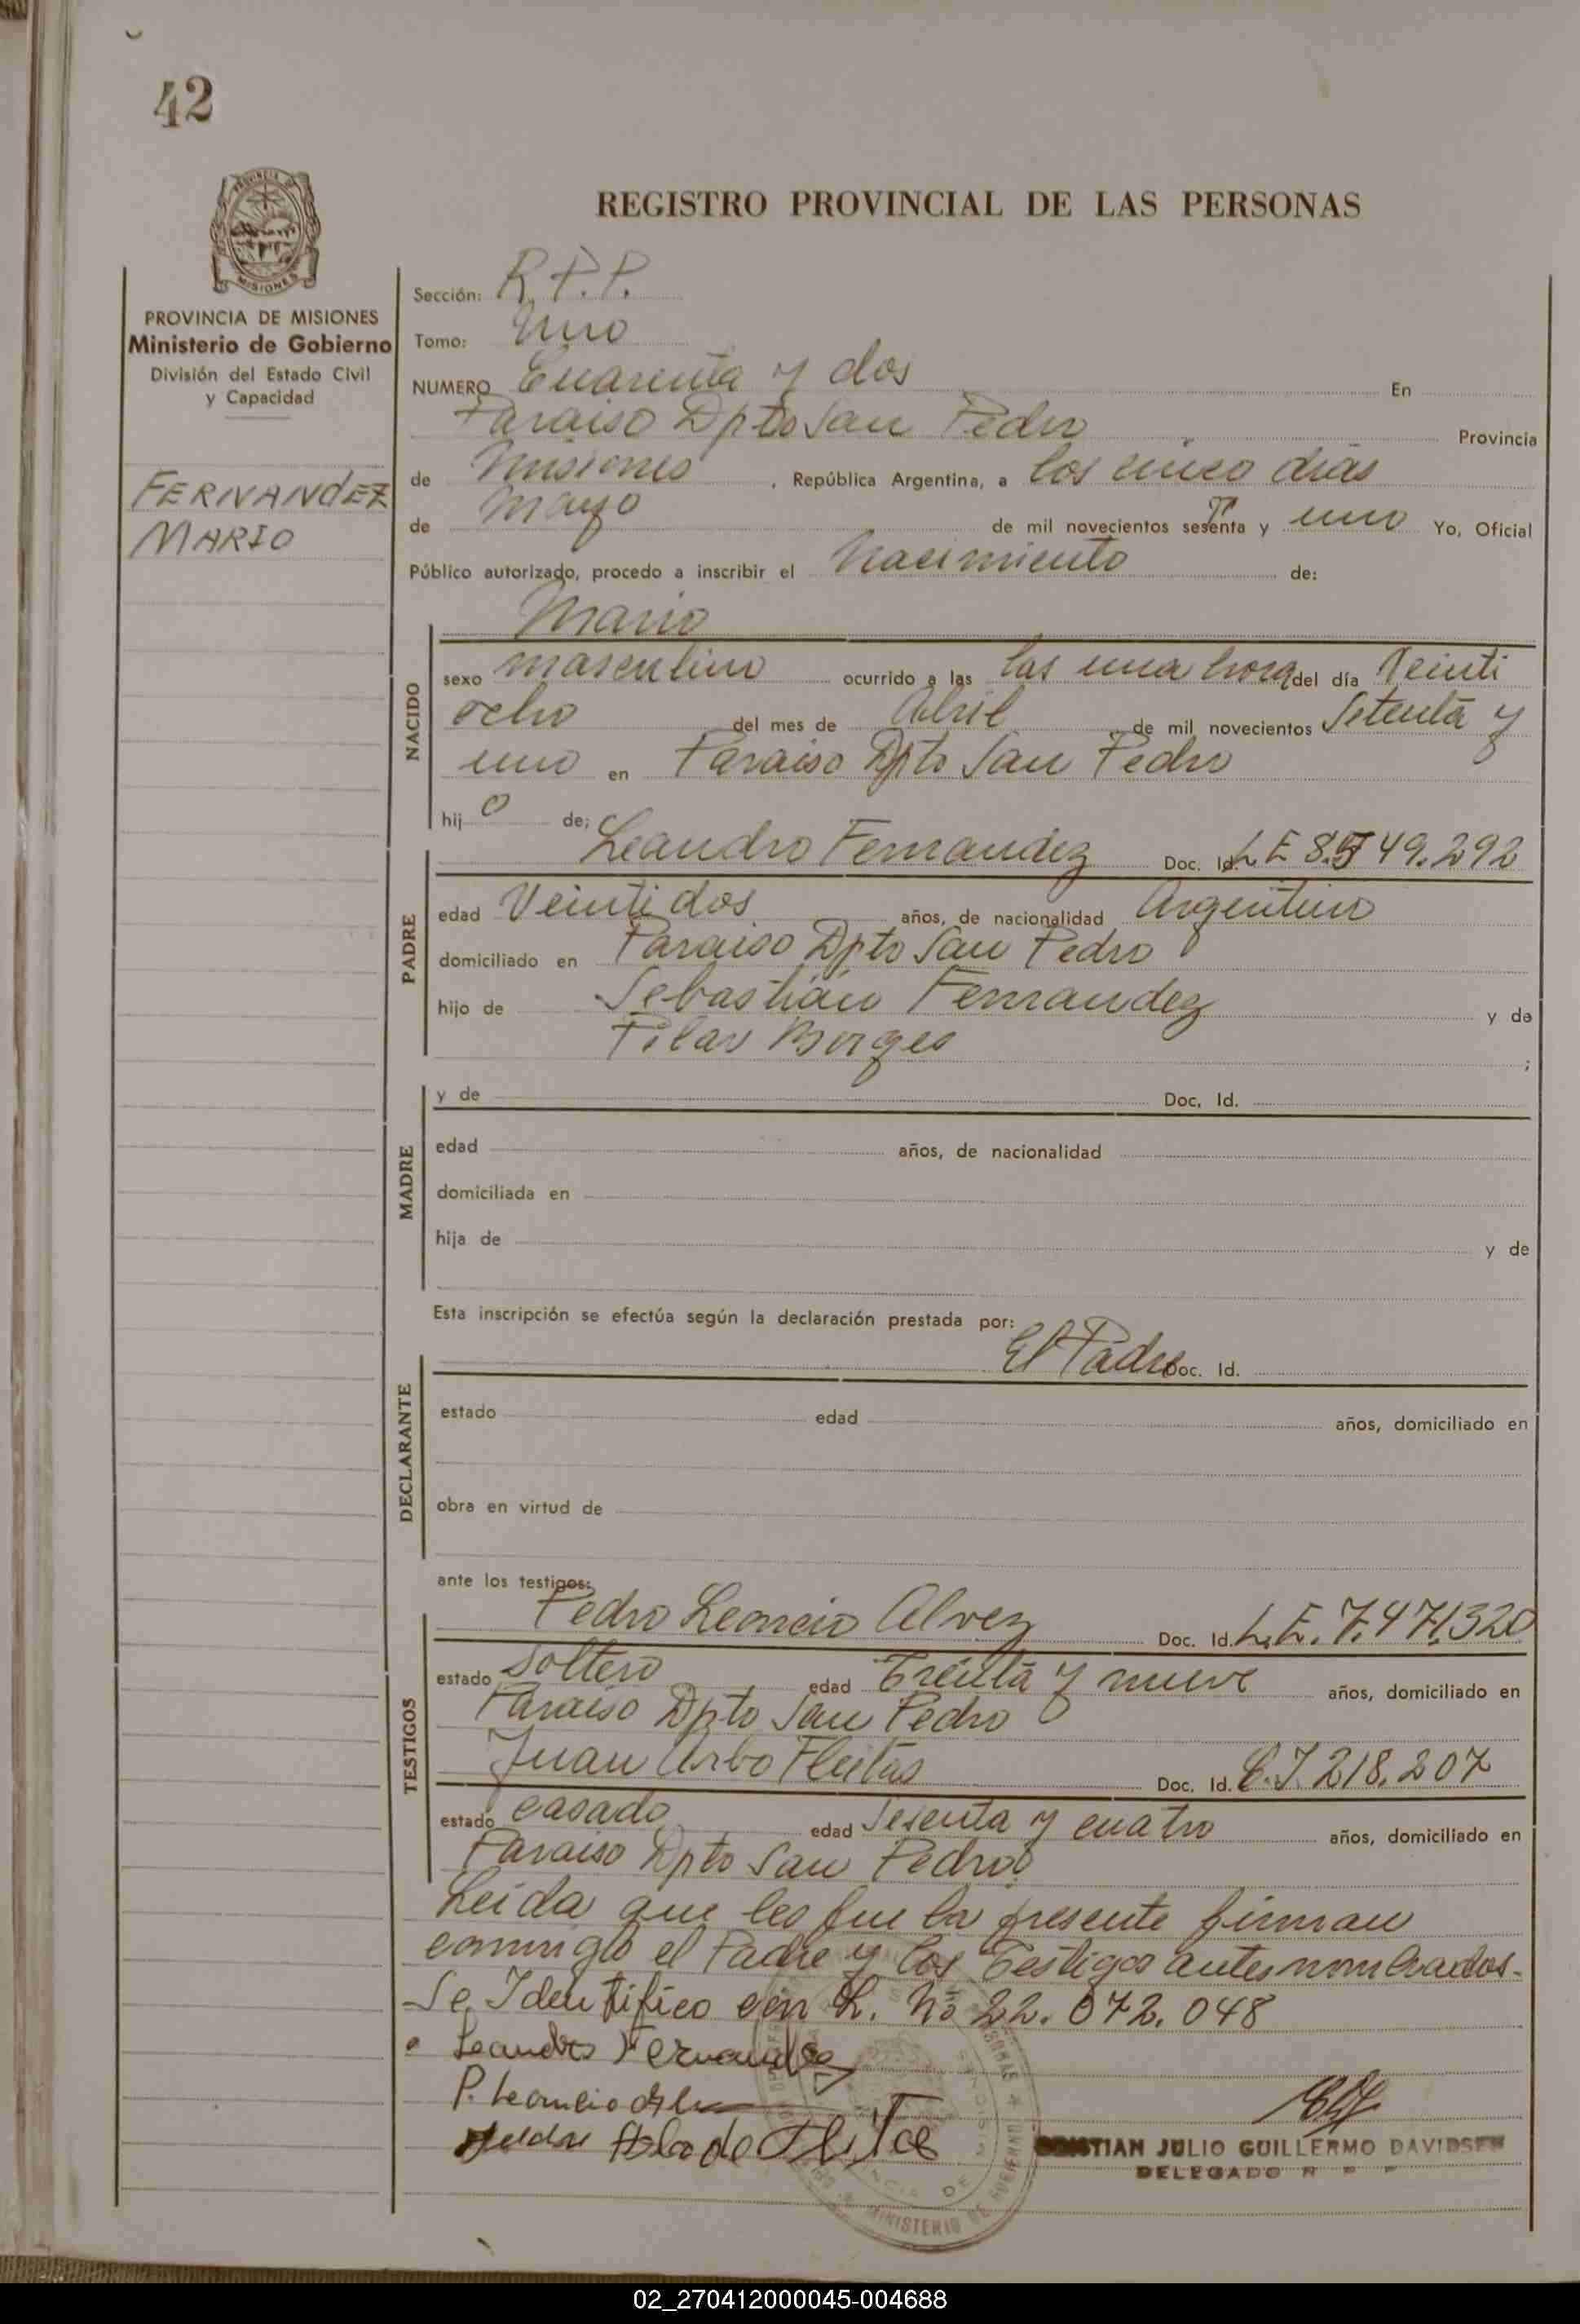 42
REGISTRO PROVINCIAL DE LAS PERSONAS
PROVINCIA DE MISIONES
Ministerio de Gobierno
División del Estado Civil
y Capacidad
FERNANDEZ
MARIO
Sección: R.P.P.
Tomo: Uno
NUMERO Cuarenta y dos En
Paraiso Dpto San Pedro Provincia
de Misiones, República Argentina, a los cinco dias
de Mayo de mil novecientos setenta y uno Yo, Oficial
Público autorizado, procedo a inscribir el Nacimiento de:
NACIDO
Mario
sexo masculino ocurrido a las las una hora del día Veinti
ocho del mes de Abril de mil novecientos Setenta y
uno en Paraiso Dpto San Pedro
hijo de;
PADRE
Leandro Fernandez Doc. Id. L.E 8.549.292
edad Veintidos años, de nacionalidad Argentino
domiciliado en Paraiso Dpto San Pedro
hijo de Sebastián Fernandez y de
Pilar Borges ;
MADRE
y de Doc. Id.
edad años, de nacionalidad
domiciliada en
hija de y de
Esta inscripción se efectúa según la declaración prestada por:
DECLARANTE
El Padre Doc. Id.
estado edad años, domiciliado en
obra en virtud de
ante los testigos:
TESTIGOS
Pedro Leoncio Alvez Doc. Id. L.E. 7.471.320
estado Soltero edad Treinta y nueve años, domiciliado en
Paraiso Dpto San Pedro
Juan Arbo Fleitas Doc. Id. C.I. 218.207
estado casado edad Sesenta y cuatro años, domiciliado en
Paraiso Dpto San Pedro.
Leida que les fue la presente firman
conmigo el Padre y los Testigos antes nombrados.
Se Identifico con L. Nº 22.072.048
Leandro Fernandez
P. Leoncio
CRISTIAN JULIO GUILLERMO DAVIDSEN
DELEGADO R P P
MINISTERIO DE GOBIERNO
02_270412000045-004688